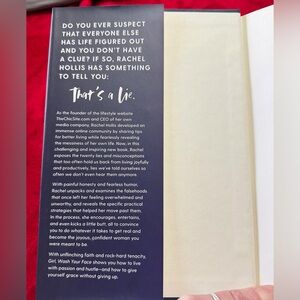 DO YOU EVER SUSPECT
THAT EVERYONE ELSE
HAS LIFE FIGURED OUT
AND YOU DON'T HAVE
A CLUE? IF SO, RACHEL
HOLLIS HAS SOMETHING
TO TELL YOU:
That's a Lie.
As the founder of the lifestyle website
TheChicSite.com and CEO of her own
media company, Rachel Hollis developed an
immense online community by sharing tips
for better living while fearlessly revealing
the messiness of her own life. Now, in this
challenging and inspiring new book, Rachel
exposes the twenty lies and misconceptions
that too often hold us back from living joyfully
and productively, lies we've told ourselves so
often we don't even hear them anymore.
With painful honesty and fearless humor,
Rachel unpacks and examines the falsehoods
that once left her feeling overwhelmed and
unworthy, and reveals the specific practical
strategies that helped her move past them.
In the process, she encourages, entertains,
and even kicks a little butt, all to convince
you to do whatever it takes to get real and
become the joyous, confident woman you
were meant to be.
With unflinching faith and rock-hard tenacity,
Girl, Wash Your Face shows you how to live
with passion and hustle—and how to give
yourself grace without giving up.